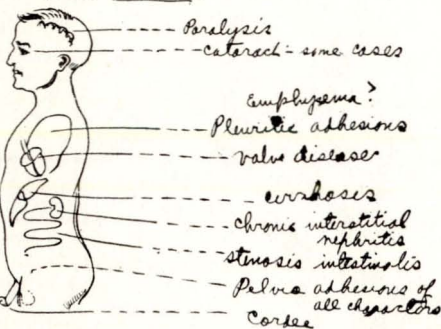 Paralysis
Cataract - some cases
Emphysema?
Pleuritic adhesions
valve disease
cirrhosis
chronic interstitial
nephritis
stenosis intestinalis
Pelvic adhesions of
all characters
Cordee